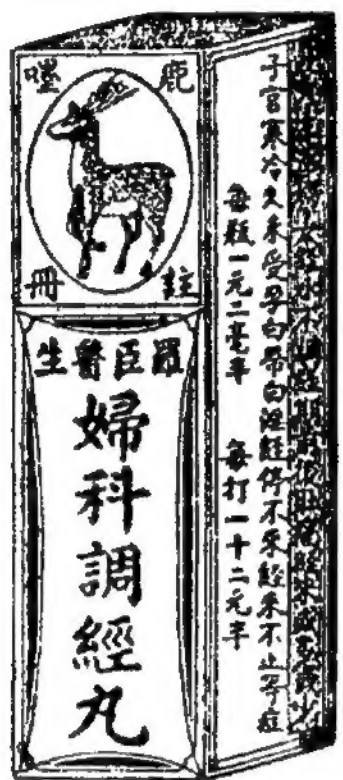 鹿嘜
註冊
羅臣醫生
婦科調經丸
經水不調
子宮寒冷久未受孕白帶白淫經停不來經來不止等症
每瓶一元二毫半 每打一十二元半